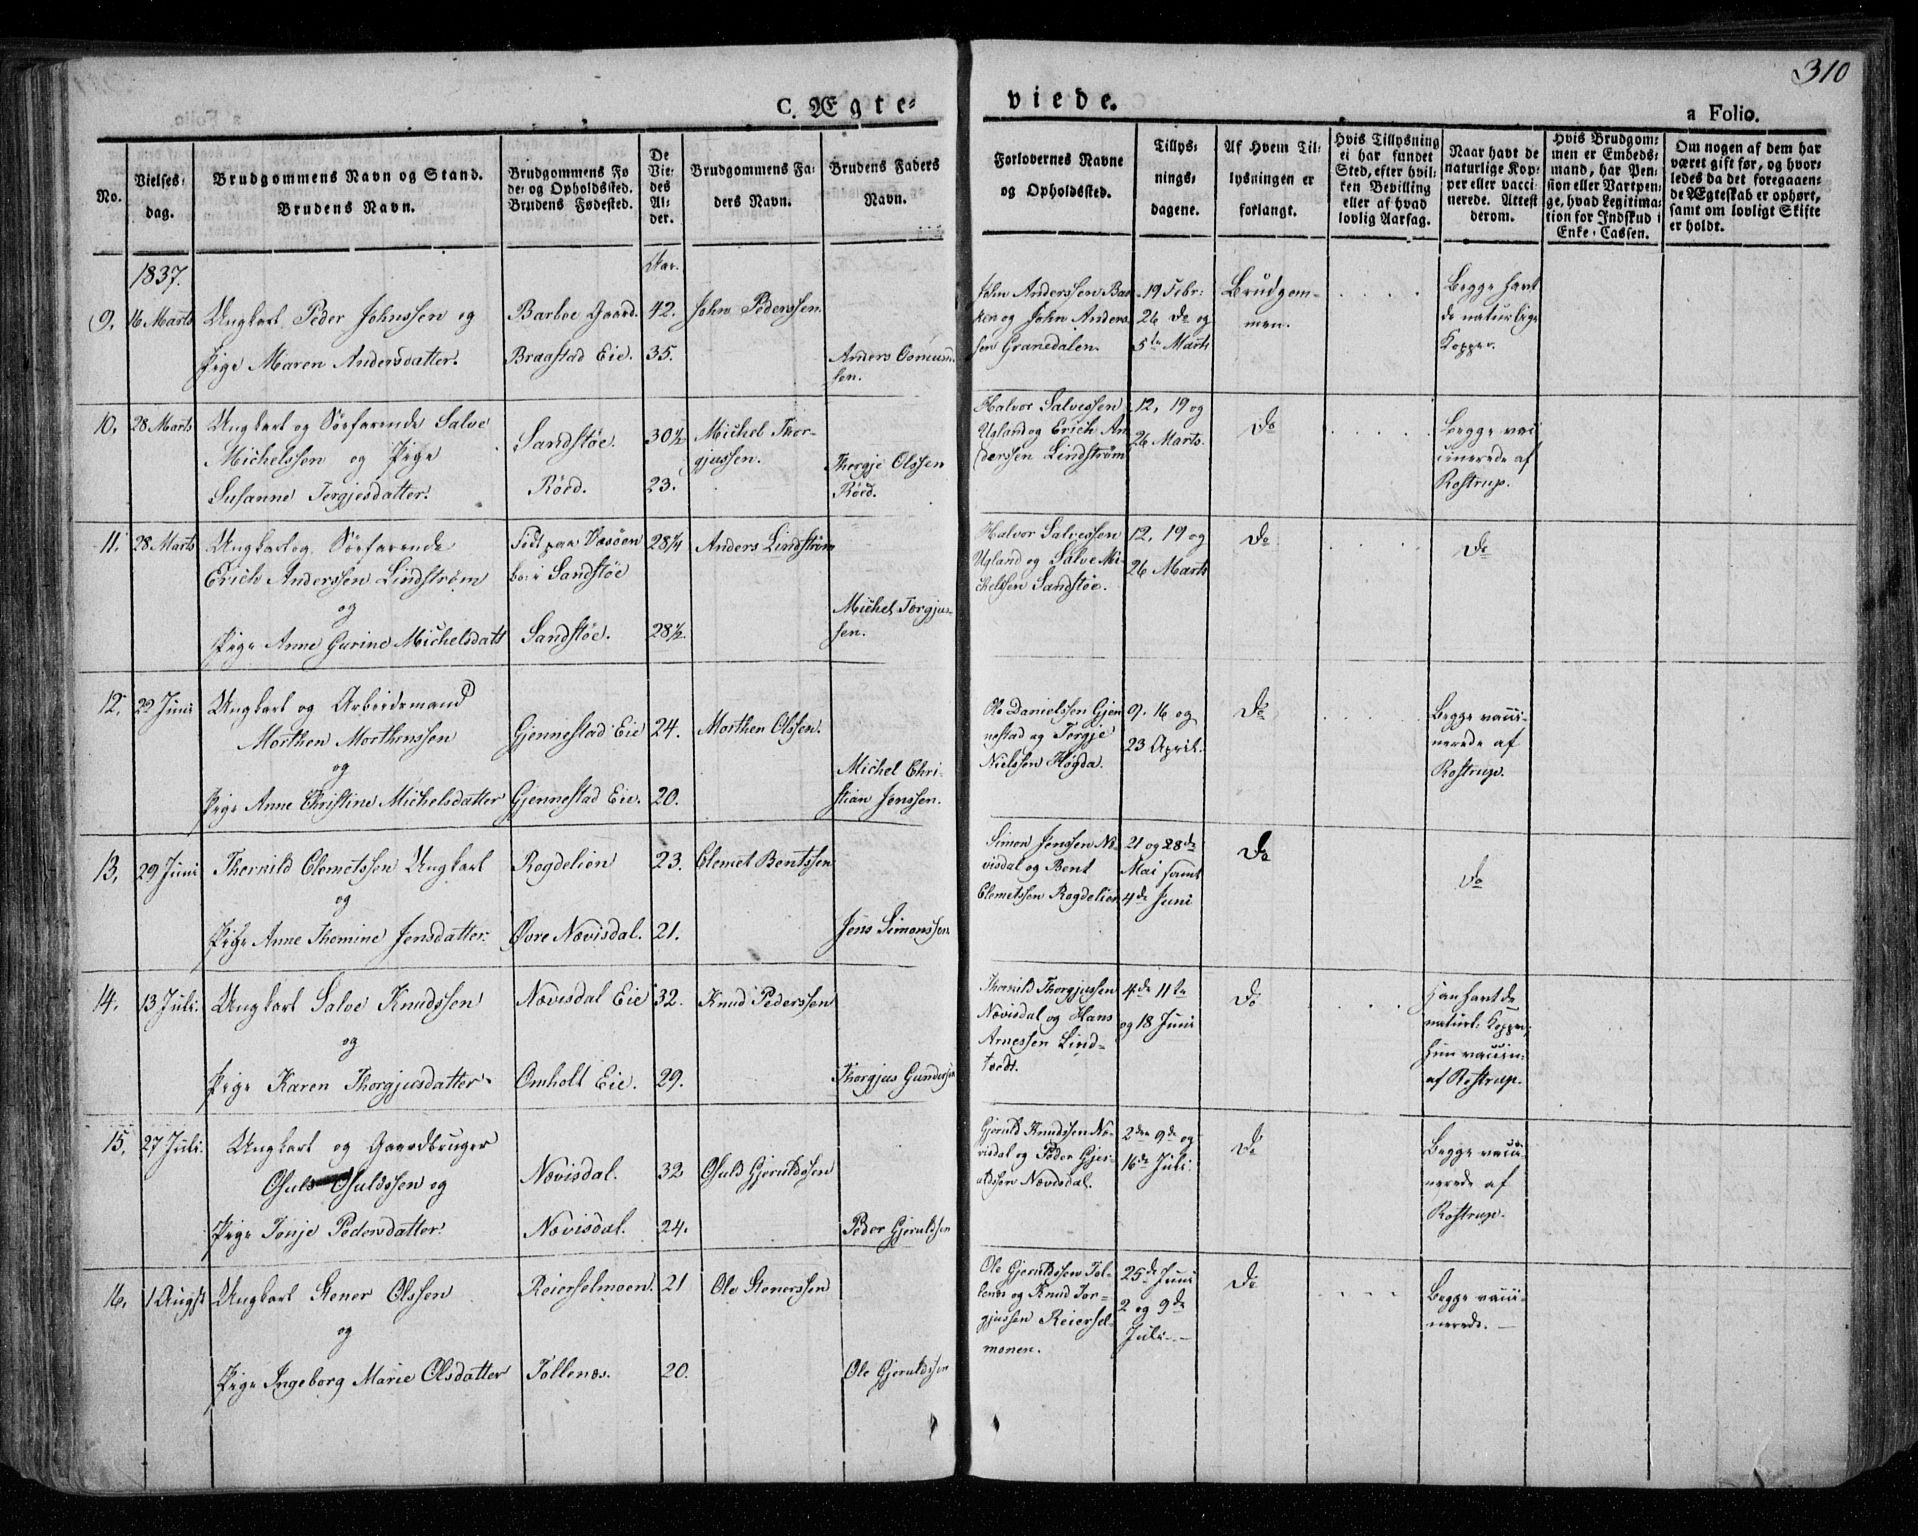 310
C. Ægte-
viede.
a Folio.
No.
Vielses-
dag.
Brudgommens Navn og Stand.
Brudens Navn.
Brudgommens Fø
de- og Opholdssted.
Brudens Fødested.
De
Vie-
des
Al-
der.
Brudgommens Fa-
ders Navn.
Brudens Faders
Navn.
Forlovernes Navne
og Opholdssted.
Tillys-
nings-
dagene.
Af Hvem Til-
lysningen er
forlangt.
Hvis Tillysning
ei har fundet
Sted, efter hvil-
ken Bevilling
eller af hvad
lovlig Aarsag.
Naar havt de
naturlige Kop-
per eller vacci-
nerede. Attest
derom.
Hvis Brudgom-
men er Embeds-
mand, har Pen-
sion eller Vartpen-
ge, hvad Legitima-
tion for Indskud i
Enke-Cassen.
Om nogen af dem har
været gift før, og hvor-
ledes da det foregaaen-
de Ægteskab er ophørt,
samt om lovligt Skifte
er holdt.
1837.
Aar.
9.
16 Marts
Ungkarl Peder Johnssen og
Pige Maren Andersdatter.
Barboe Gaard.
Braastad Eie.
42.
35.
John Pederssen.
Anders Osmund
sen.
John Anderssen Bar
ken og John Anders
sen Granedalen.
19 Febr:
26 De og
5te Marts
Brudgom-
men.
Begge havt
de naturlige
Kopper.
10.
28 Marts
Ungkarl og Söefarende Salve
Michelssen og Pige
Susanne Tergjesdatter.
Sandstöe.
Röed.
30½
23.
Michel Thor-
gjussen.
Thergje Olssen
Röed.
Halvor Salvessen
Ugland og Erich An
derssen Lindström
12, 19 og
26 Marts.
Do
Begge vac
cinerede af
Rostrup.
11.
28 Marts
Ungkarl og Söefarende
Erich Anderssen Lindström
og
Pige Anne Gurine Michelsdatt
Födt paa Væsöen
bo: i Sandstöe
Sandstöe.
28¼
28½
Anders Lindström
Michel Torgjus-
sen.
Halvor Salvessen
Ugland og Salve Mi-
chelssen Sandstöe.
12, 19 og
26 Marts
Do
Do
12.
22 Juni
Ungkarl og Arbeidsmand
Morthen Morthenssen
og
Pige Anne Christine Michelsdatter
Gjennestad Eie
Gjennestad Eie.
24.
20.
Morthen Olssen.
Michel Chri-
stian Jenssen.
Ole Danielssen Gjen
nestad og Tergje
Nielssen Högda.
9, 16 og
23 April.
Do
Begge vacci-
nerede af
Rostrup.
13.
29 Juni
Thornild Clemetssen Ungkarl
og
Pige Anne Thomine Jensdatter.
Rogdelien
Övre Nævisdal.
23.
21.
Clemet Bentssen
Jens Simonssen
Simon Jenssen Næ-
visdal og Bent
Clemetssen Rogdelien
21 og 28de
Mai samt
4de Juni
Do
Do
14.
13 Juli.
Ungkarl Salve Knudssen
og
Pige Karen Thorgjusdatter
Nævisdal Eie
Omholt Eie.
32.
29.
Knud Pederssen
Thorgjus Gunderssen
Thornild Thorgjussen
Nævisdal og Hans
Arnessen Lind-
tvedt.
4de 11te
og 18 Juni
Do
Han havt de
naturl: Kopper,
hun vaccin:
af Rostrup.
15.
27 Juli.
Ungkarl og Gaardbruger
Osuld Osuldssen og
Pige Tonje Pedersdatter.
Nævisdal.
Nævisdal.
32
24.
Osuld Gjeruldssen
Peder Gjeruldssen
Gjeruld Knudssen Næ-
visdal og Peder Gjer-
uldssen Nævisdal.
2den 9de og
16de Juli
Do
Begge vacci-
nerede af
Rostrup.
16.
1 August
Ungkarl Stener Olssen
og
Pige Ingeborg Marie Olsdatter
Reierselmoen.
Tollenæs.
21
20.
Ole Stenerssen
Ole Gjeruldssen
Ole Gjeruldssen Tol-
lenæs og Knud Tor-
gjussen Reiersel-
monen.
25de Juni
2 og 9de
Juli.
Do
Begge vacci-
nerede.